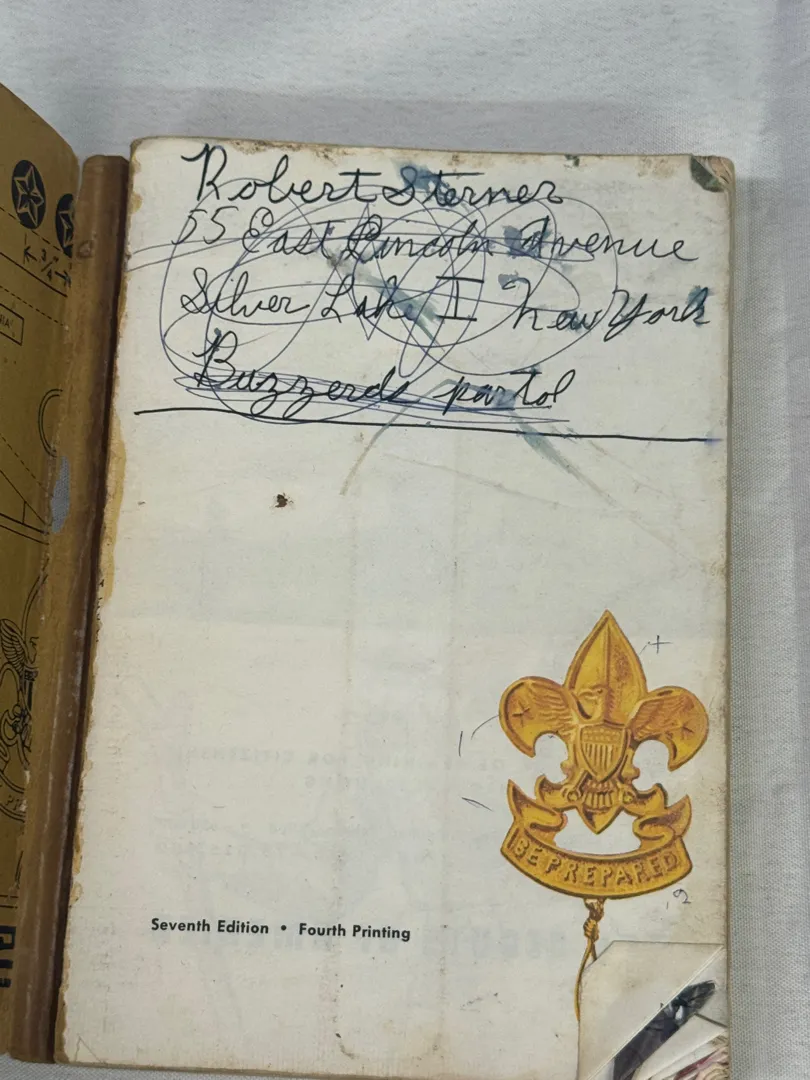 Robert Sterner
55 East Lincoln Avenue
Silver Lake II New York
Buzzerds partol
BE PREPARED
Seventh Edition • Fourth Printing